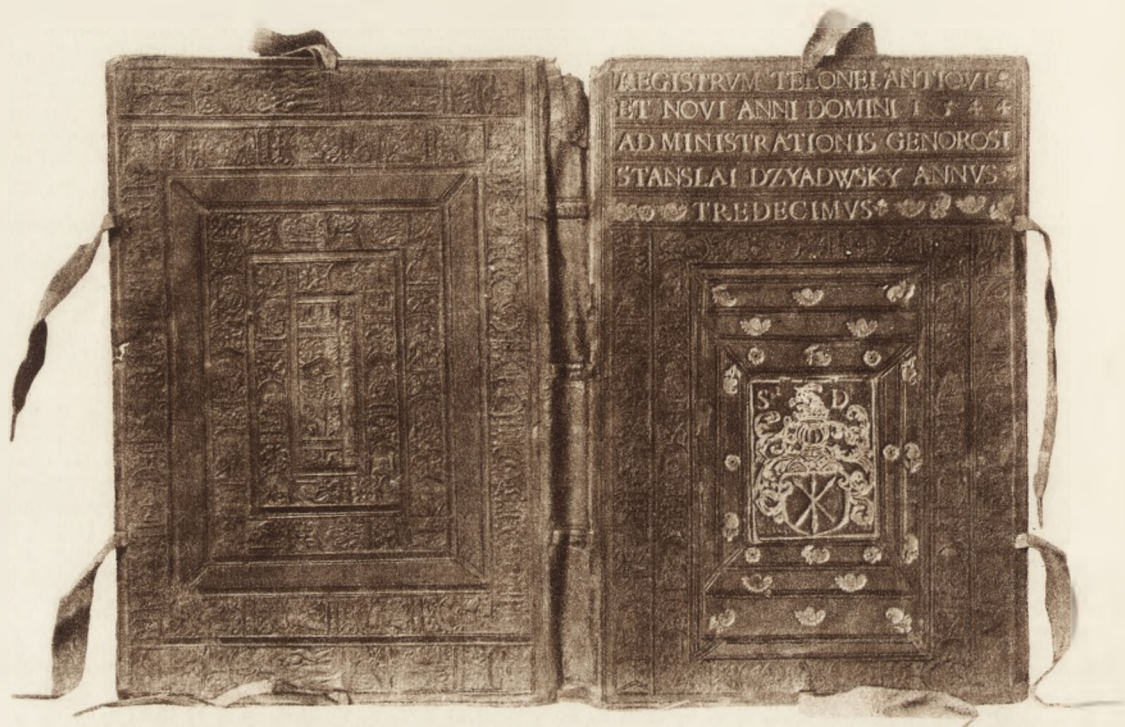 REGISTRVM TELONEI ANTIQVI
ET NOVI ANNI DOMINI 1544
ADMINISTRATIONIS GENOROSI
STANSLAI DZYADWSKY ANNVS
TREDECIMVS
S D